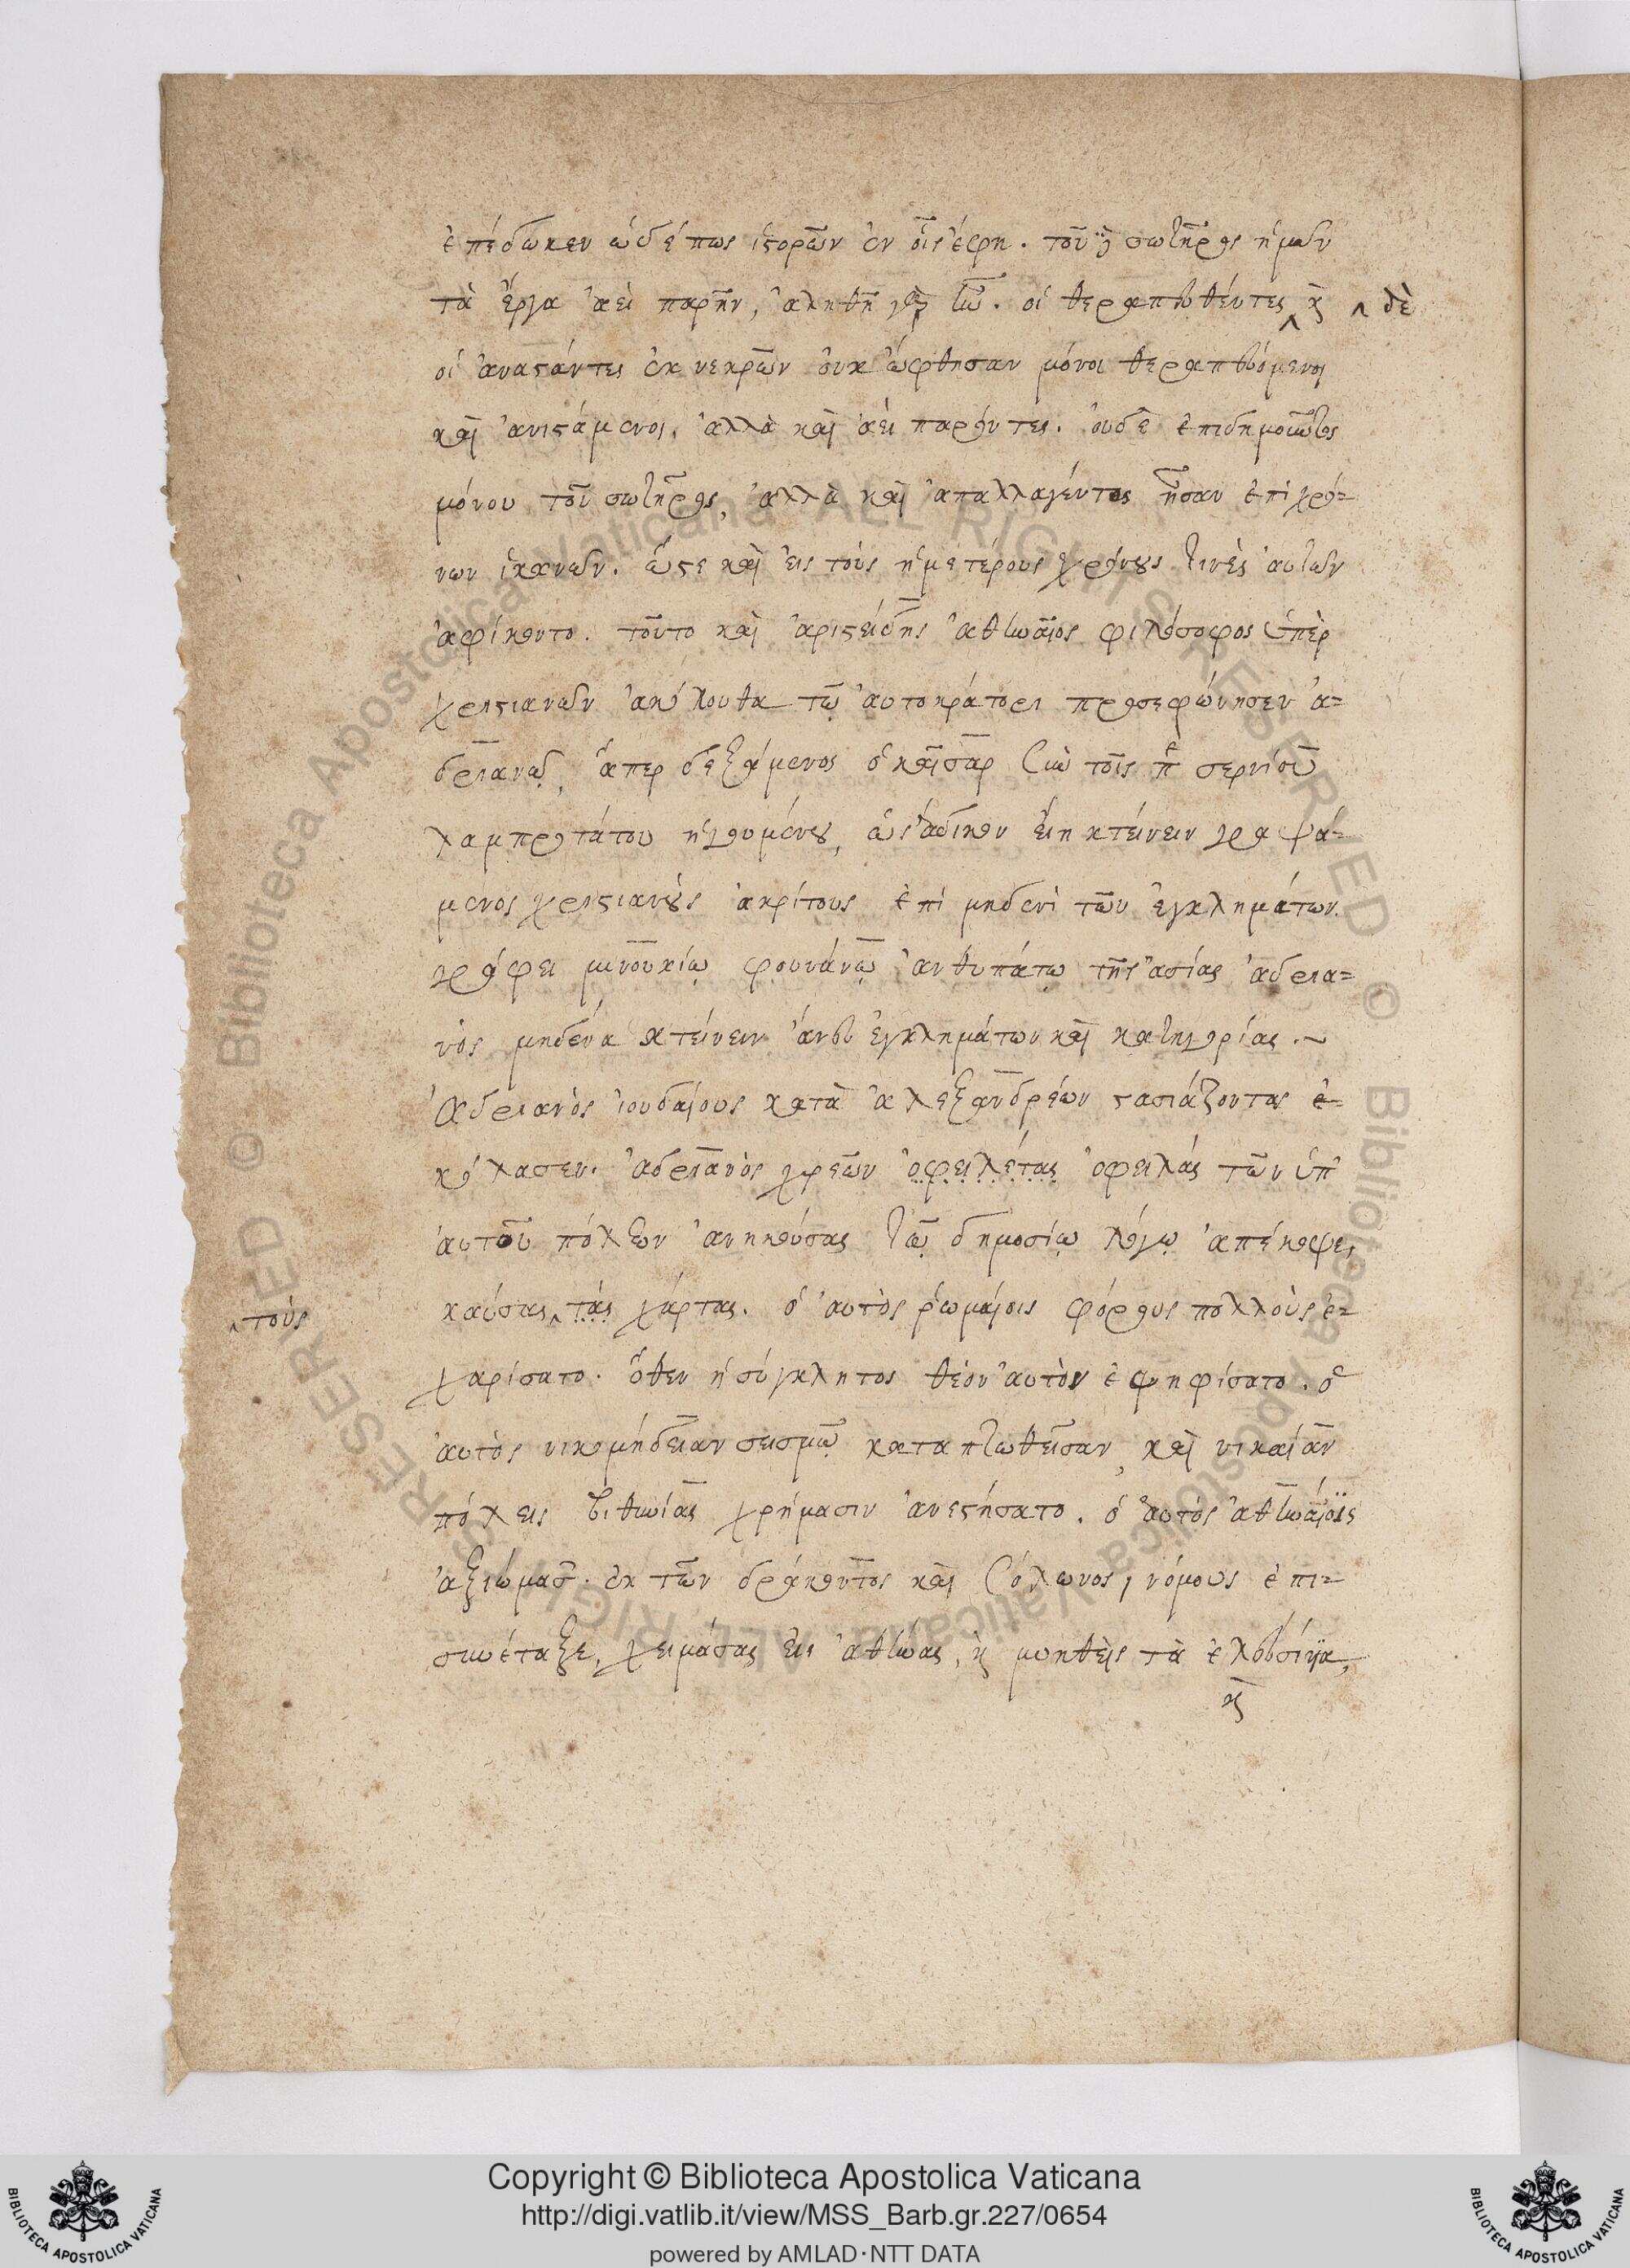 ἐπέδωκεν ὡδέπως ἱστορῶν ἐν οἷς ἔφη. τοῦ δὲ σωτῆρος ἡμῶν
τὰ ἔργα ἀεὶ παρῆν, ἀληθῆ γὰρ ἦν. οἱ θεραπευθέντες ‸ καὶ ‸ δὲ
οἱ ἀναστάντες ἐκ νεκρῶν οὐκ ὤφθησαν μόνοι θεραπευόμενοι
καὶ ἀνιστάμενοι, ἀλλὰ καὶ ἀεὶ παρόντες. οὐδὲ ἐπιδημοῦντος
μόνου τοῦ σωτῆρος, ἀλλὰ καὶ ἀπαλλαγέντος ἦσαν ἐπὶ χρό-
νων ἱκανῶν. ὥστε καὶ εἰς τοὺς ἡμετέρους χρόνους τινὲς αὐτῶν
ἀφίκοντο. τοῦτο καὶ ἀριστείδης ἀθηναῖος φιλόσοφος ὑπὲρ
χριστιανῶν ἀκόλουθα τῷ αὐτοκράτορι προσεφώνησεν ἀ-
δριανῷ, ἅπερ δεξάμενος ὁ καῖσαρ σὺν τοῖς π σερνίου
λαμπροτάτου ἡγουμένου, ὡς ἄδικον εἴη κτείνειν γραψά-
μενος χριστιανοὺς ἀκρίτους ἐπὶ μηδενὶ τῶν ἐγκλημάτων.
γράφει μινουκίῳ φουνάνῳ ἀνθυπάτῳ τῆς ἀσίας ἀδρια-
νὸς μηδένα κτείνειν ἄνευ ἐγκλημάτων καὶ κατηγορίας. ~
Ἀδριανὸς ἰουδαίους κατὰ ἀλεξανδρέων στασιάζοντας ἐ-
κόλασεν. ἀδριανὸς χρεῶν ὀφειλέτας ὀφειλάς τῶν ὑπ'
αὐτοῦ πόλεων ἀνηκούσας τῷ δημοσίῳ λόγῳ ἀπέκοψε,
‸ τοὺς καύσας ‸ τάς χάρτας. ὁ αὐτὸς ῥωμαίοις φόρους πολλοὺς ἐ-
χαρίσατο. ὅθεν ἡ σύγκλητος θεὸν αὐτὸν ἐψηφίσατο. ὁ
αὐτὸς νικομήδειαν σεισμῷ καταπτωθεῖσαν, καὶ νικαίαν
πόλεις βιθυνίας χρήμασιν ἀνεστήσατο. ὁ αὐτὸς ἀθηναίοις
ἀξιώμασι. ἐκ τῶν δράκοντος καὶ σόλωνος, νόμους ἐπι-
συνέταξε, χειμάσας εἰς ἀθήνας, καὶ μυηθεὶς τὰ ἐλευσίνια,
καὶ
Copyright © Biblioteca Apostolica Vaticana
http://digi.vatlib.it/view/MSS_Barb.gr.227/0654
powered by AMLAD·NTT DATA